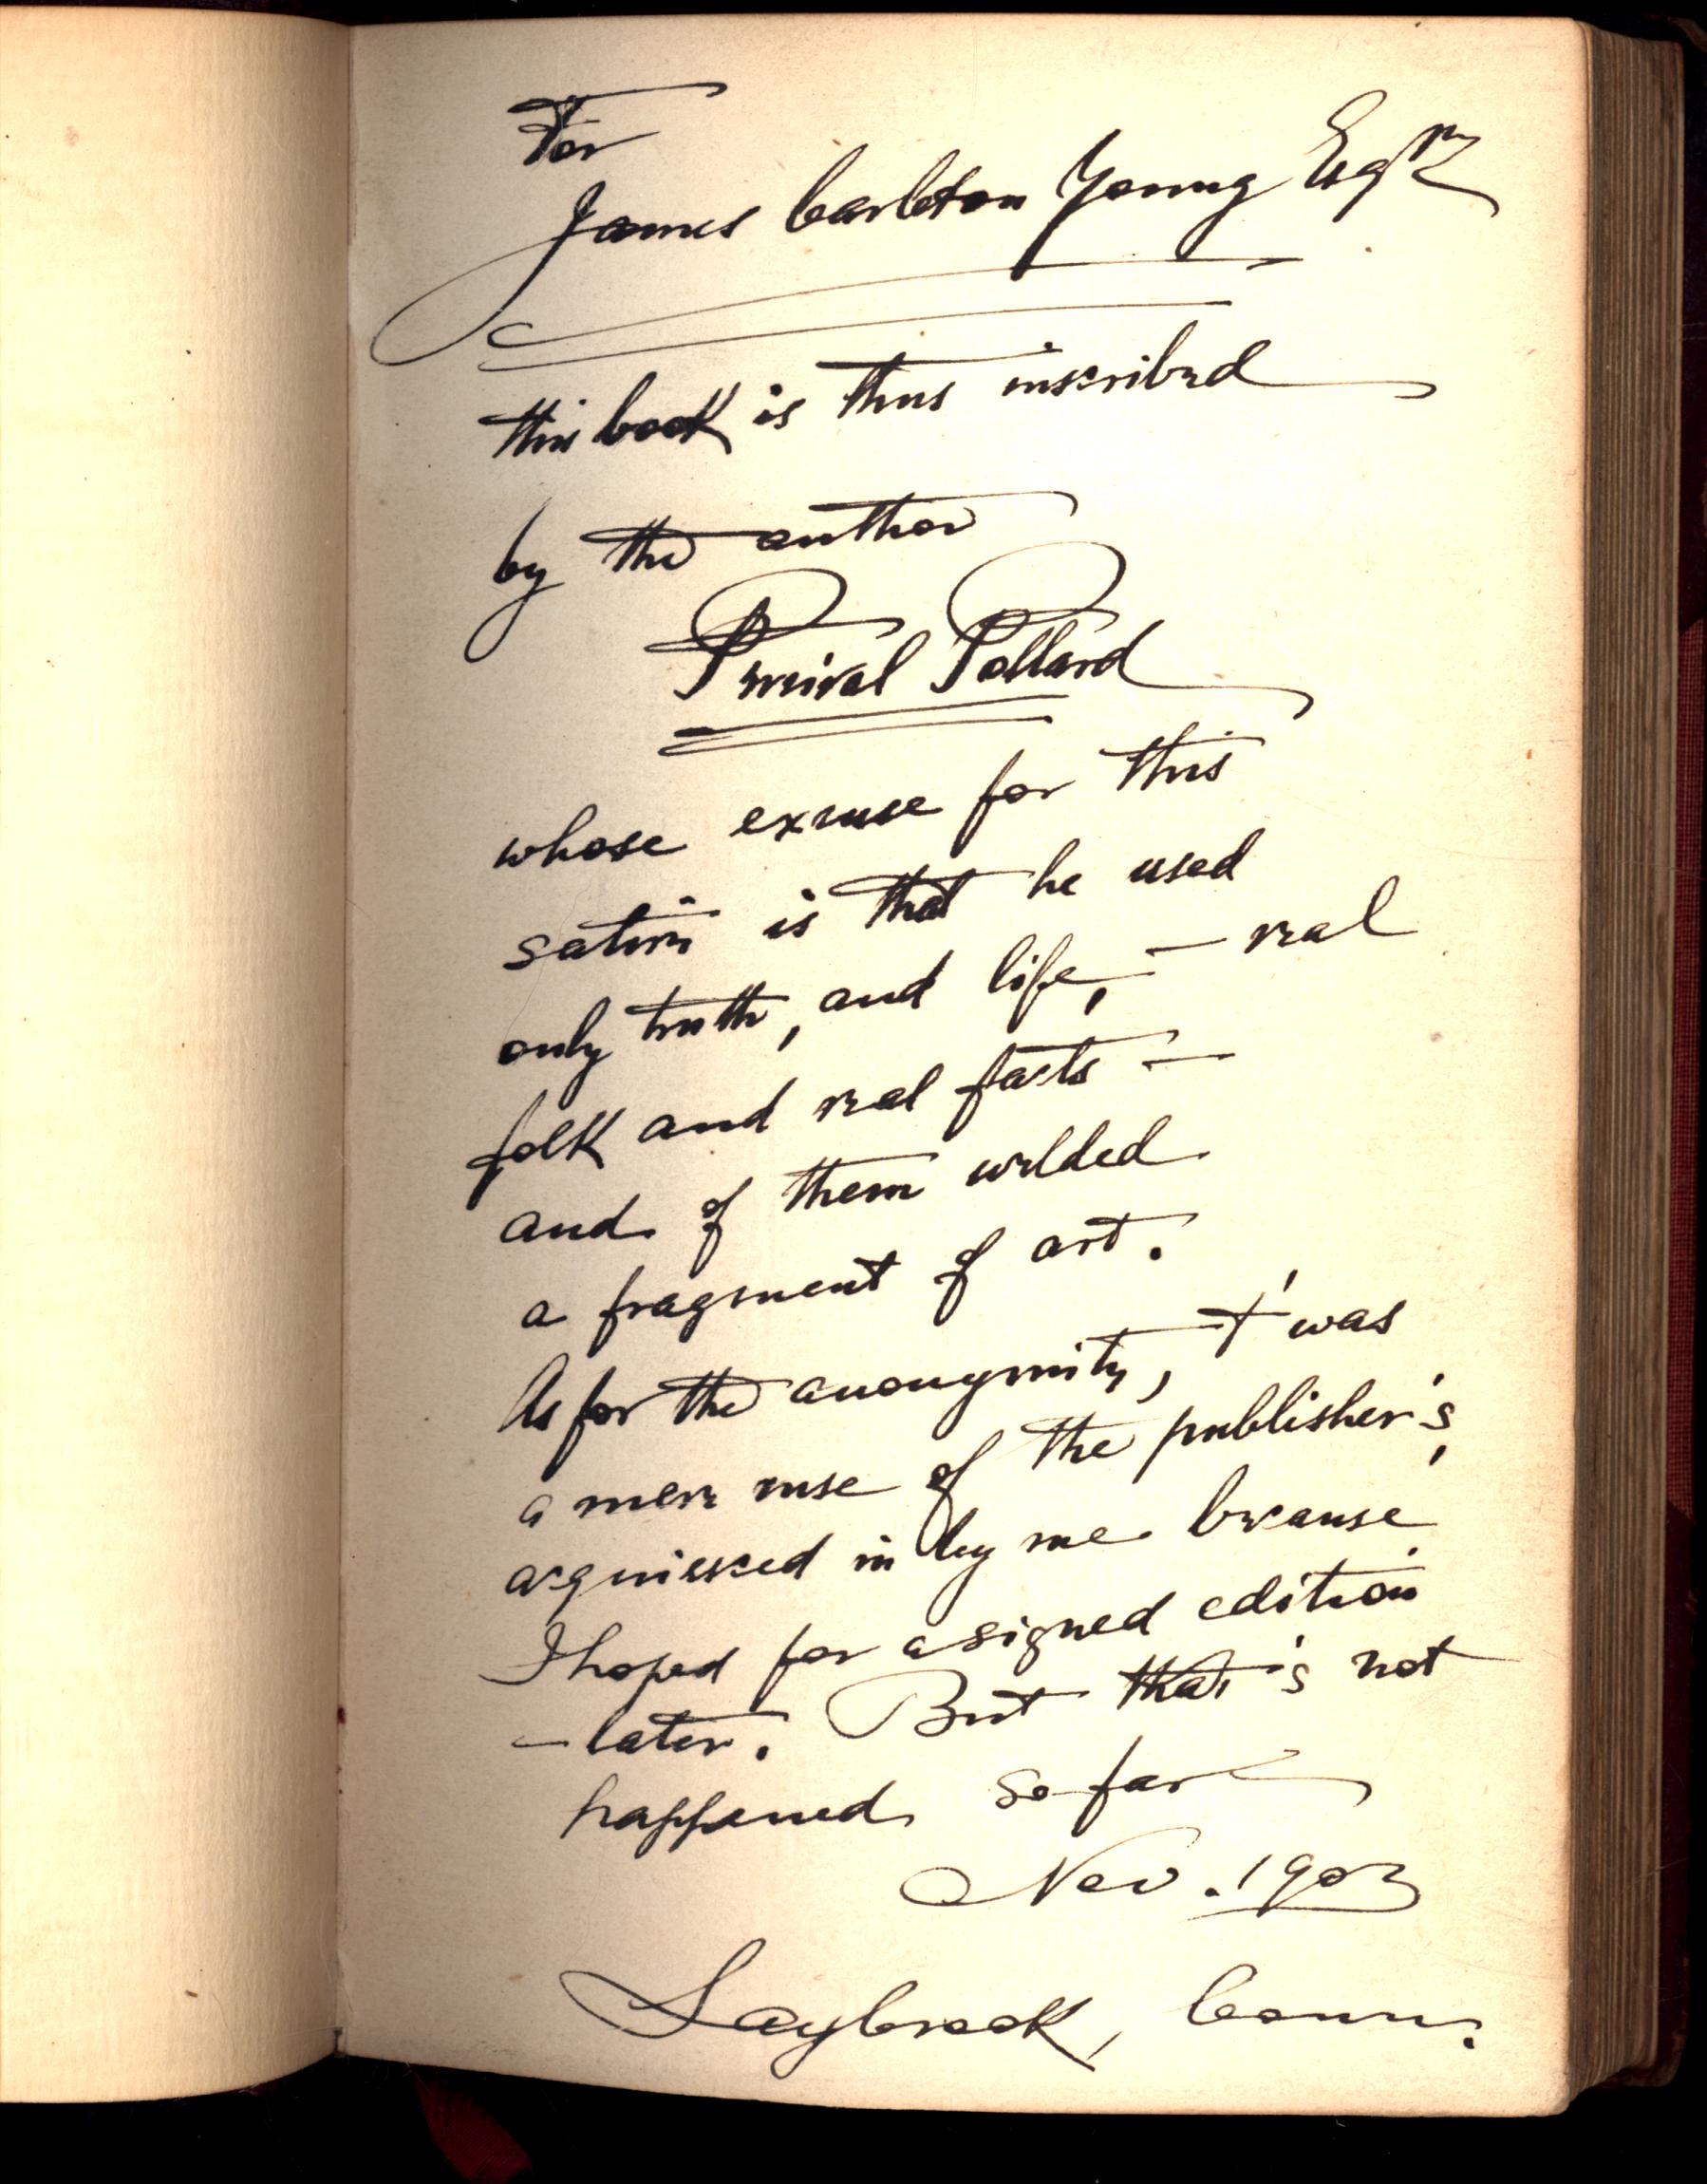 For
James Carleton Young Esqre
this book is thus inscribed
by the author
Percival Pollard
whose excuse for this
satire is that he used
only truth, and life, — real
folk and real facts —
and of them welded
a fragment of art.
As for the anonymity, t'was
a mere ruse of the publisher's,
acquiesced in by me because
I hoped for a signed edition
— later. But that's not
happened so far
Nov. 1903
Saybrook, Conn.